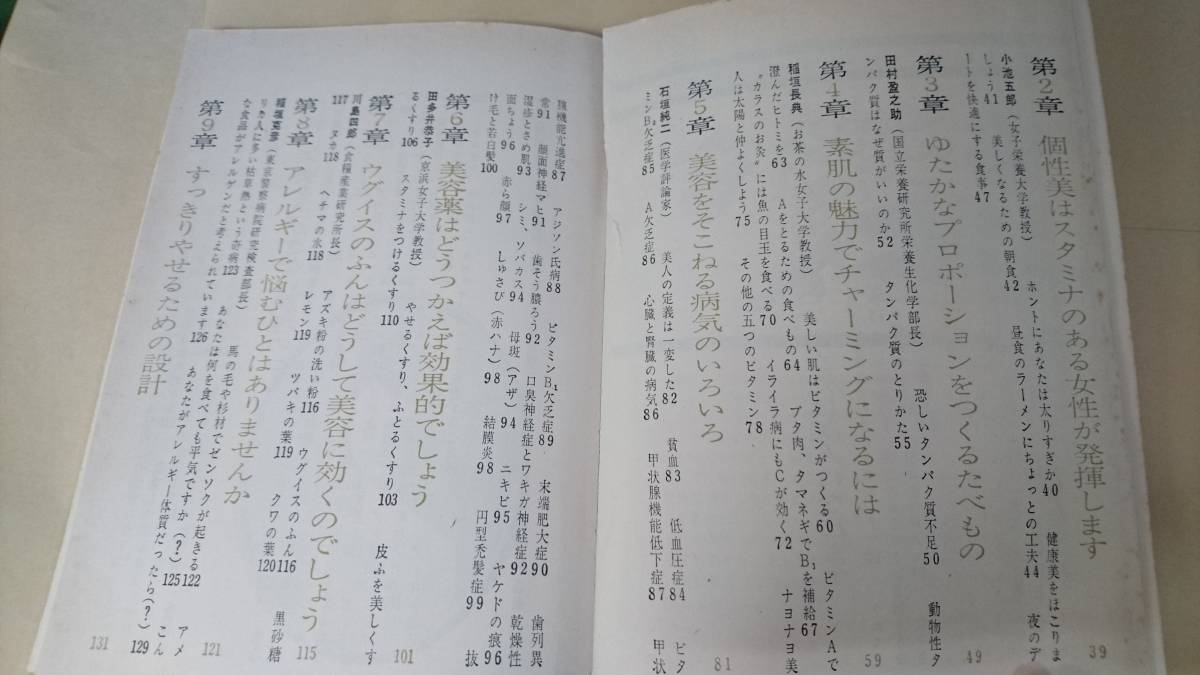 第2章 個性美はスタミナのある女性が発揮します 39
小池五郎(女子栄養大学教授) ホントにあなたは太りすぎか40 健康美をほこりま
しょう41 美しくなるための朝食42 昼食のラーメンにちょっとの工夫44 夜のデ
ートを快適にする食事47
第3章 ゆたかなプロポーションをつくるたべもの 49
田村盈之助(国立栄養研究所栄養生化学部長) 恐しいタンパク質不足50 動物性タ
ンパク質はなぜ質がいいのか52 タンパク質のとりかた55
第4章 素肌の魅力でチャーミングになるには 59
稲垣長典(お茶の水女子大学教授) 美しい肌はビタミンがつくる60 ビタミンAで
澄んだヒトミを63 Aをとるための食べもの64 ブタ肉、タマネギでB₁を補給67 ナヨナヨ美
人は太陽と仲よくしよう75 “カラスのお灸”には魚の目玉を食べる70 イライラ病にもCが効く72
その他の五つのビタミン78
第5章 美容をそこねる病気のいろいろ 81
石垣純二(医学評論家) 美人の定義は一変した82 貧血83 低血圧症84 ビタ
ミンB₂欠乏症85 A欠乏症86 心臓と腎臓の病気86 甲状腺機能低下症87 甲状
腺機能亢進症87 アジソン氏病88 ビタミンB₁欠乏症89 末端肥大症90 歯列異
常91 顔面神経マヒ91 歯そう膿ろう92 口臭神経症とワキガ神経症92 乾燥性
湿疹とさめ肌93 シミ、ソバカス94 母斑(アザ)94 ニキビ95 ヤケドの痕96
面ちょう96 赤ら顔97 しゅさび(赤ハナ)98 結膜炎98 円型禿髪症99 抜
け毛と若白髪100
第6章 美容薬はどうつかえば効果的でしょう 101
田多井恭子(京浜女子大学教授) やせるくすり、ふとるくすり103 皮ふを美しくす
るくすり106 スタミナをつけるくすり110
第7章 ウグイスのふんはどうして美容に効くのでしょう 115
川島四郎(食糧産業研究所長) アズキ粉の洗い粉116 ウグイスのふん116 黒砂糖
117 ヌカ118 ヘチマの水118 レモン119 ツバキの葉119 クワの葉120
第8章 アレルギーで悩むひとはありませんか 121
稲垣克彦(東京警察病院研究検査部長) 馬の毛や杉材でゼンソクが起きる122 アメ
リカ人に多い枯草熱という奇病123 あなたは何を食べても平気ですか(?)125 こん
な食品がアレルゲンだと考えられています126 あなたがアレルギー体質だったら(?)129
第9章 すっきりやせるための設計 131